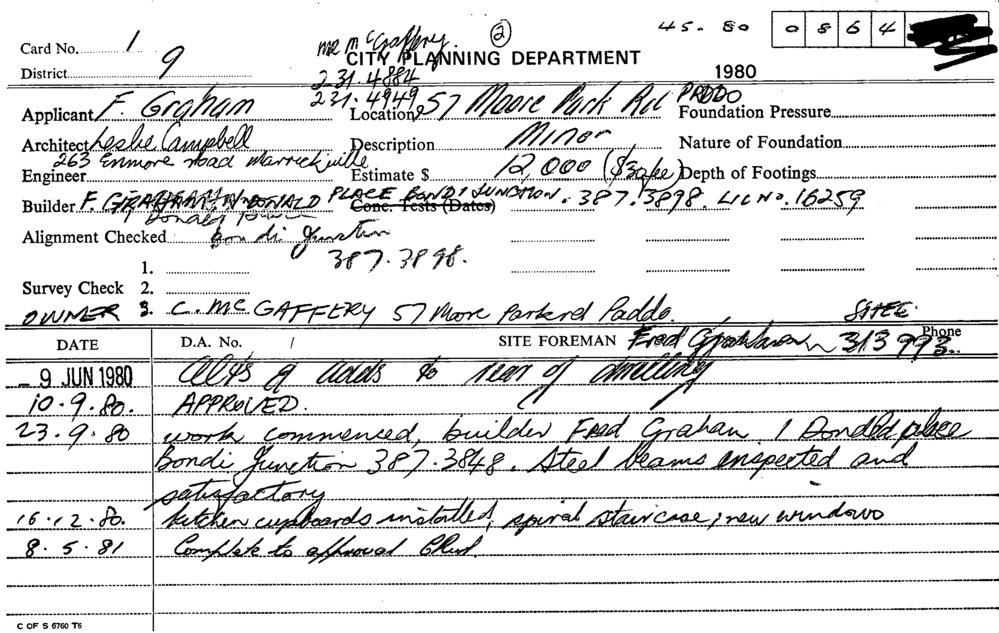 45. 80 0864
Card No. 1 Mr McGaffery. 2
CITY PLANNING DEPARTMENT
District 9 231.4884 1980
Applicant F. Graham 231.4949 Location 57 Moore Park Rd PADDO Foundation Pressure
Architect Leslie Campbell Description Minor Nature of Foundation
263 Enmore road Marrickville
Engineer Estimate $ 12,000 Depth of Footings
Builder F. GRAHAM DONALD PLACE BONDI JUNCTION. 387.3898. LIC No. 16259
Conc. Tests (Dates)
Alignment Checked Bondi Junction
387.3898.
1.
Survey Check 2.
OWNER 3. C. McGAFFERY 57 Moore Park rd Paddo. SITE
DATE D.A. No. / SITE FOREMAN Fred Graham 313 993 Phone
- 9 JUN 1980 Alts & adds to rear of dwelling
10.9.80. APPROVED.
23.9.80 work commenced, builder Fred Graham 1 Donald place
Bondi Junction 387.3848. Steel beams inspected and
satisfactory
16.12.80. kitchen cupboards installed, spiral staircase, new windows
8.5.81 Complete to approval
C OF S 6760 T6